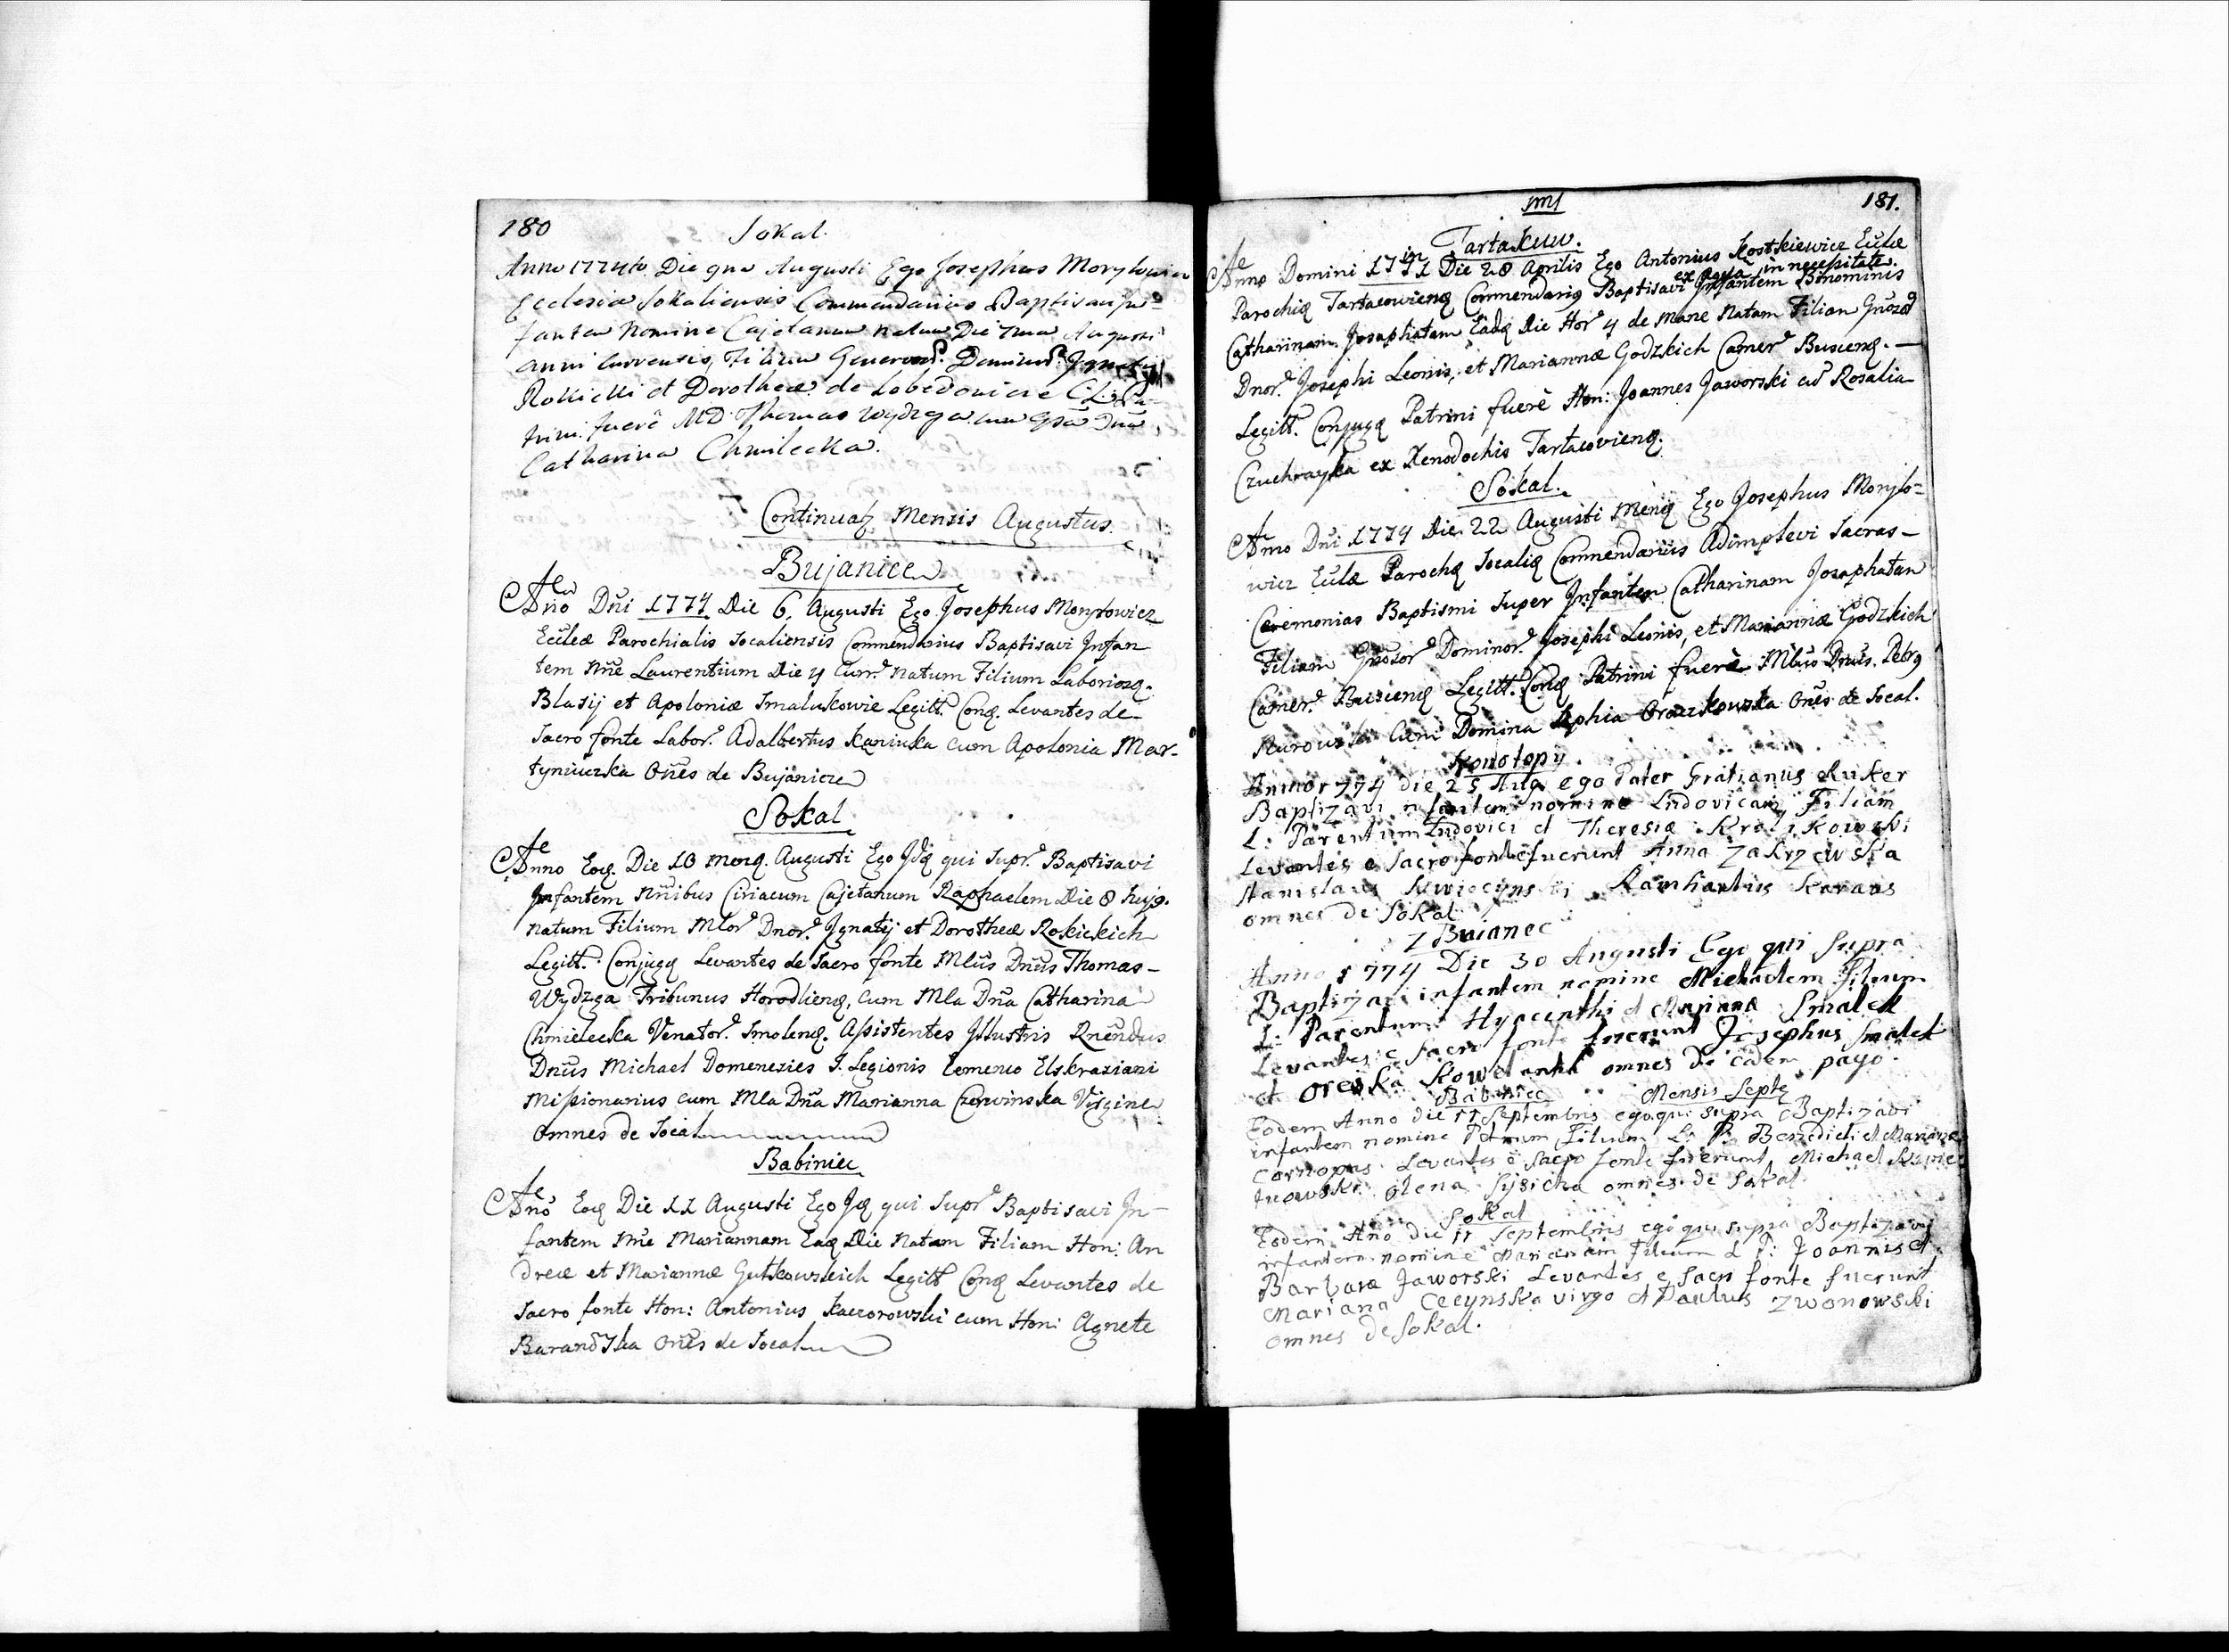 180
Sokal.
Anno 1774to Die 9na Augusti Ego Josephus Morylowicz
Ecclesia Sokaliensis Commendarius Baptisavi In-
fantem Nomine Cajetanum natum Die 7ma Augusti
anni currentis, Filium Generosor. Dominor. Ignatij
Rokicki et Dorotheæ de C.L. Pa-
trini fuerē MD Thomas Wydzga cum Gsa Dna
Catharina Chmilecka.
Continuat Mensis Augustus.
Bujanice
Año Dñi 1774 Die 6. Augusti Ego Josephus Morylowicz
Ecclæ Parochialis Socaliensis Commendarius Baptisavi Infan
tem Nñe Laurentium Die 4 Curr. natum Filium Laborioq.
Blasij et Apoloniæ Smalukowie Legitt. Conq. Levantes de
Sacro fonte Labor. Adalbertus Kaziuka cum Apolonia Mar-
tyniuczka Oñes de Bujanice
Sokal
Anno Eoq. Die 10 Mensq. Augusti Ego Idq qui Supr. Baptisavi
Infantem Nñibus Ciriacum Cajetanum Raphaelem Die 8 hujq.
natum Filium Mlor Dnor. Ignatij et Dorotheæ Rokickich
Legitt. Conjugq Levantes de Sacro fonte Mlūs Dñus Thomas-
Wydzga Tribunus Horodlienq, cum Mla Dña Catharina
Chmielecka Venator. Smolenq. Assistentes Illustris Rñendus
Dñus Michael Domenezies S. Legionis
Missionarius cum Mla Dña Marianna Czerwinska Virgine
Omnes de Socal
Babiniec
Año Eoq Die 11 Augusti Ego Iq qui Supr Baptisavi In-
fantem Nñe Mariannam Eaq Die Natam Filiam Hon: An
dreæ et Mariannæ Gutkowskich Legitt Conq Levantes de
Sacro fonte Hon: Antonius Kaczorowski cum Hon: Agnete
Oñes de Socal
181.
Tartakuw.
in
Anno Domini 1771 Die 28 Aprilis Ego Antonius Kostkiewicz Ecclæ
ex aqua in necessitate.
Parochiq Tartacovienq Commendariq Baptisavi Infantem Binominis
Catharinam Josaphatam Eadq Die Hor. 4 de Mane Natam Filian Gñozor
Dnor. Josephi Leonis, et Mariannæ Godzkich Camer. Buscenq.-
Legitt. Conjugq Patrini fuerē Hon: Joannes Jaworski cum Rosalia
Czuchrayka ex Xenodochio Tartacovienq.
Sokal.
Anno Dñi 1774 Die 22 Augusti Menq Ego Josephus Morylo-
wicz Ecclæ Parochq Socaliq Commendariis Adimplevi Sacras-
Ceremonias Baptismi Super Infantem Catharinam Josaphatam
Filiam Gñozor Dominor. Josephi Leonis, et Mariannæ Godzkich
Camer. Buscenq Legitt. Conq Patrini fuerē Mlūs Dñus. Petrq
Cum Domina Sophia Oñes de Socal.
Konotopy
Anno 1774 die 25 Aug ego Pater Gratianus Ruker
Baptizavi infantem nomine Ludovicam Filiam
L: Parentum Ludovici et Theresiæ Krolikowski
Levantes e Sacro fonte fuerunt Anna Zakrzewska
Stanislaus
omnes de Sokal
Z Buianec
Anno 1774 Die 30 Augusti Ego qui Supra
Baptizavi infantem nomine Michaelem Filium
L: Parentum Hyacinthi et Marianæ Smalek
Levantes e Sacro fonte fuerunt Josephus Smalek
et Oreska omnes de eadem pago.
Babiniec Mensis Septe
Eodem Anno die 11 Septembris ego qui supra Baptizavi
infantem nomine Filium L: P. Benedicti et Marianæ
Levantes e Sacro fonte fuerunt Michael
Olena omnes de Sokal
Sokal
Eodem Año die 11 Septembris ego qui supra Baptizavi
infantem nomine Marianam Filium L P: Joannis et
Barbaræ Jaworski Levantes e Sacro fonte fuerunt
Mariana Cecynska virgo et Paulus Zwonowski
omnes de Sokal.